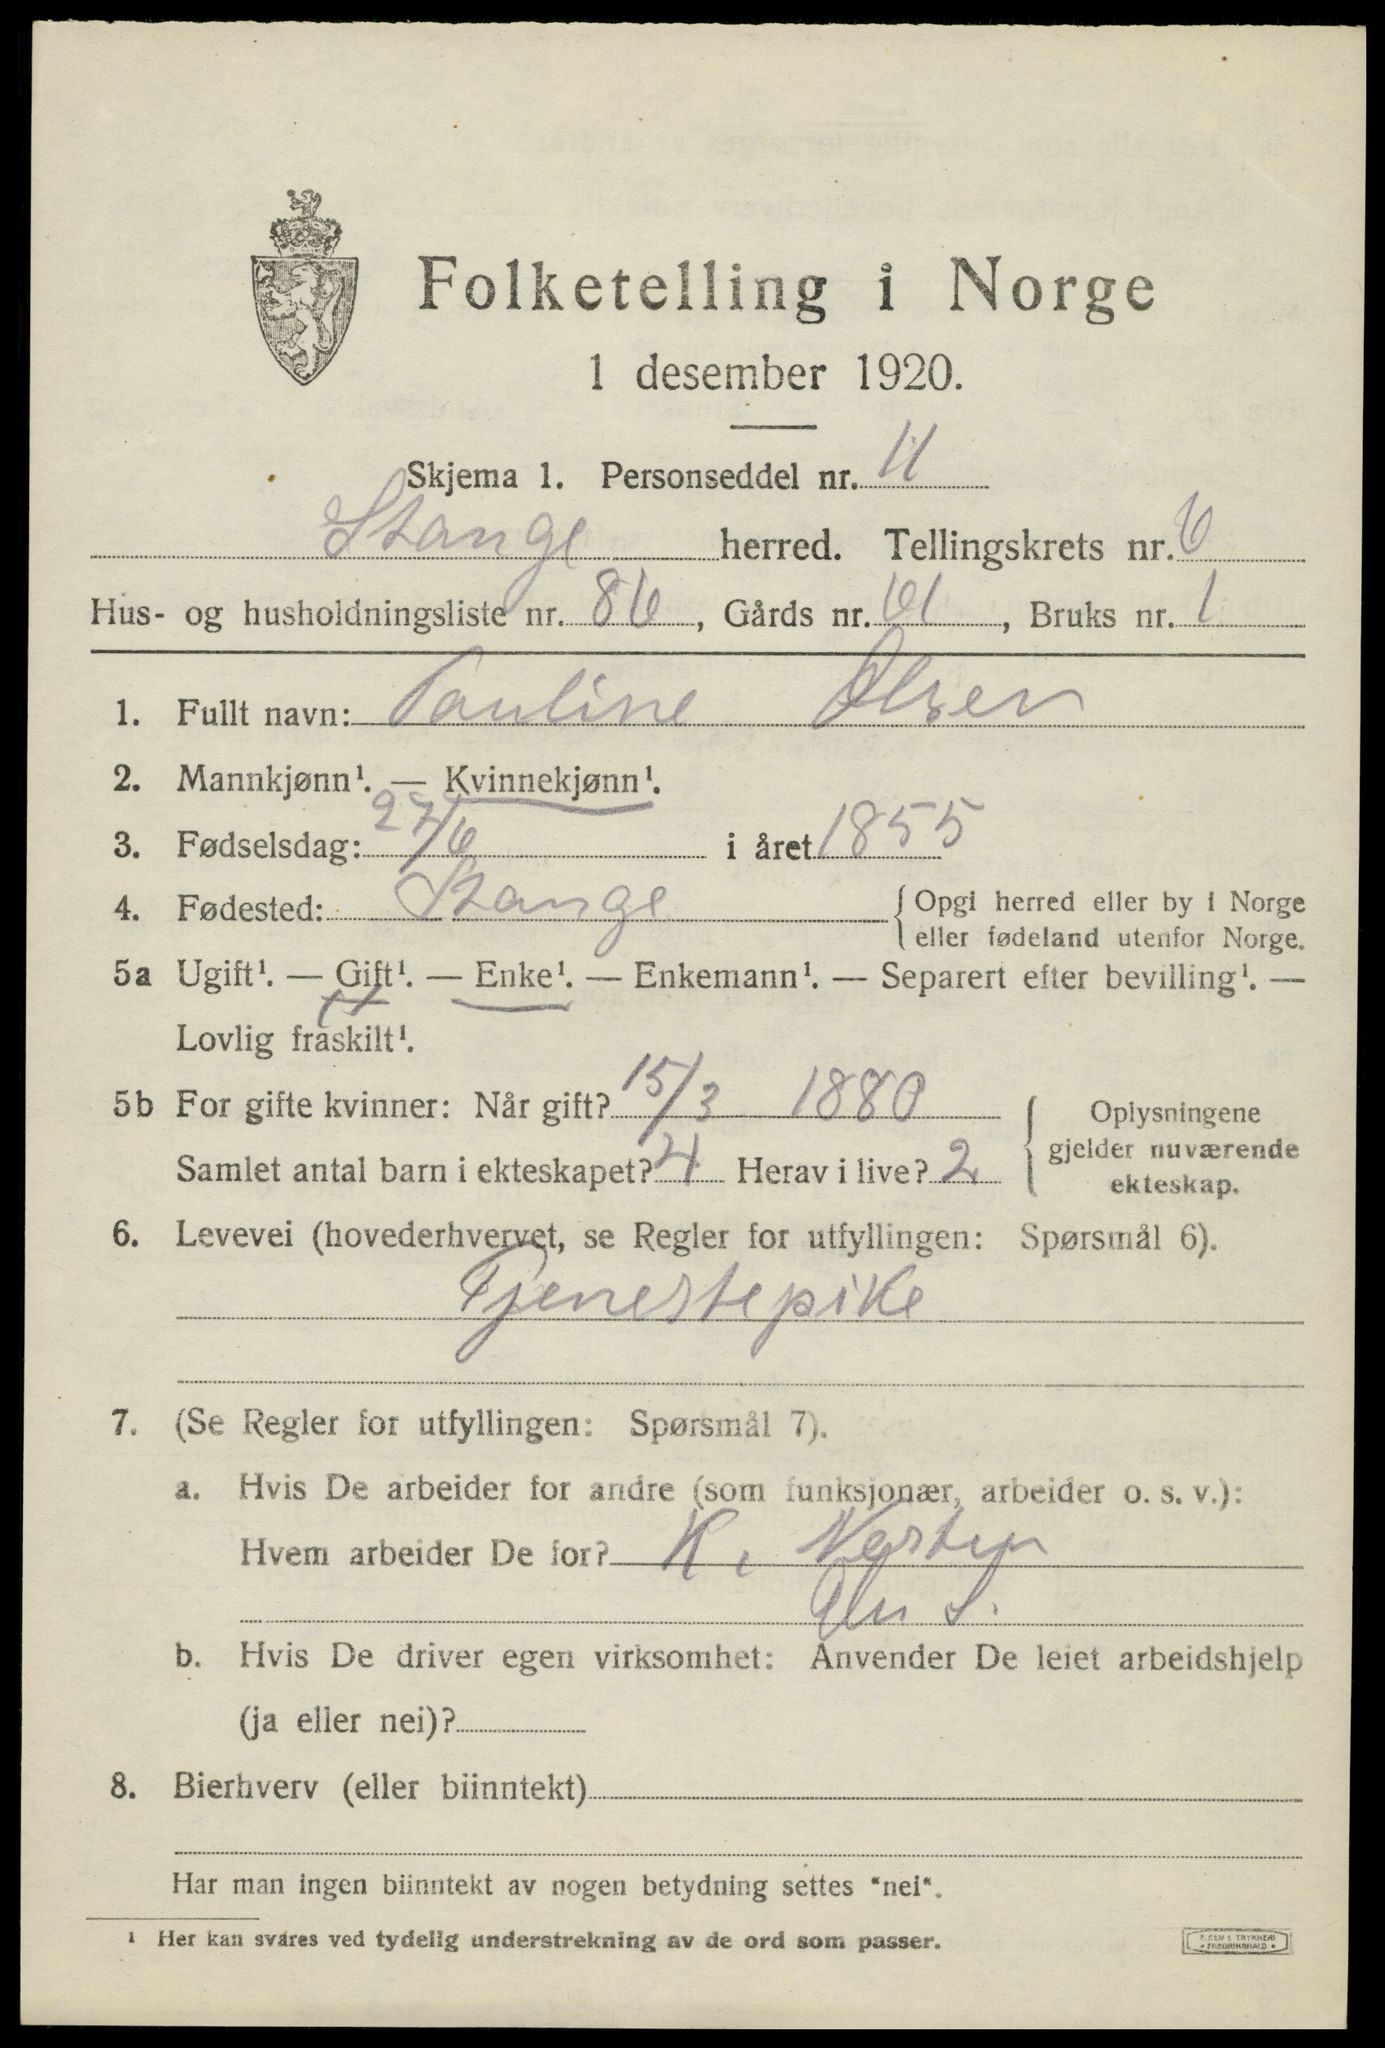 Folketelling i Norge
1 desember 1920.
Skjema 1. Personseddel nr. 4
Stange herred. Tellingskrets nr. 6
Hus- og husholdningsliste nr. 86, Gårds nr. 61, Bruks nr. 1
1. Fullt navn: Pauline Olsen
2. Mannkjønn¹. — Kvinnekjønn¹.
3. Fødselsdag: 27/6 i året 1855
4. Fødested: Stange { Opgi herred eller by i Norge
eller fødeland utenfor Norge.
5a Ugift¹. — Gift¹. — Enke¹. — Enkemann¹. — Separert efter bevilling¹. —
Lovlig fraskilt¹.
5b For gifte kvinner: Når gift? 15/3 1880
Samlet antal barn i ekteskapet? 4 Herav i live? 2
{ Oplysningene
gjelder nuværende
ekteskap.
6. Levevei (hovederhvervet, se Regler for utfyllingen: Spørsmål 6).
Tjenestepike
7. (Se Regler for utfyllingen: Spørsmål 7).
a. Hvis De arbeider for andre (som funksjonær, arbeider o. s. v.):
Hvem arbeider De for? K.
b. Hvis De driver egen virksomhet: Anvender De leiet arbeidshjelp
(ja eller nei)?
8. Bierhverv (eller biinntekt)
Har man ingen biinntekt av nogen betydning settes "nei".
¹ Her kan svares ved tydelig understrekning av de ord som passer.